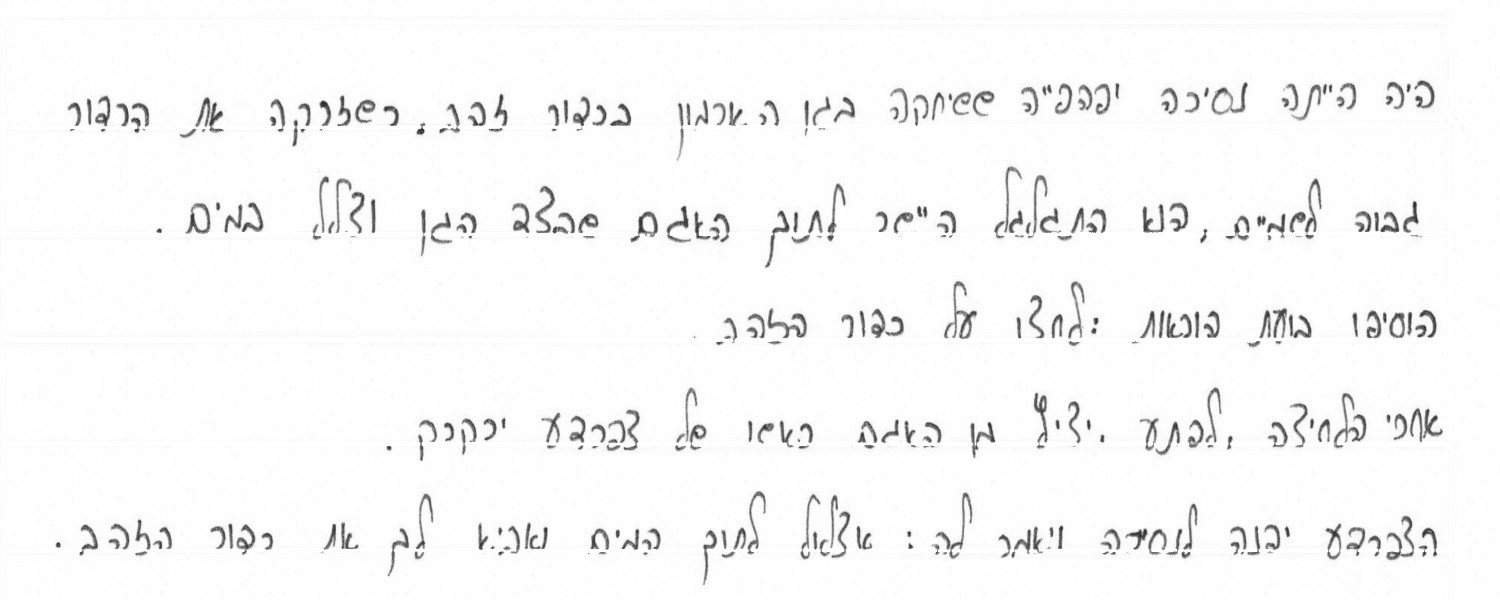 היה הייתה נסיכה יפהפייה ששיחקה בגן הארמון בכדור זהב. כשזרקה את הכדור
גבוה לשמיים, הוא התגלגל היישר לתוך האגם שבצד הגן וצלל במים.
הוסיפו בועת הוראות: לחצו על כדור הזהב.
אחרי הלחיצה, לפתע, יציץ מן האגם ראשו של צפרדע ירקרק.
הצפרדע יפנה לנסיכה ויאמר לה: אצלול לתוך המים ואביא לך את כדור הזהב.